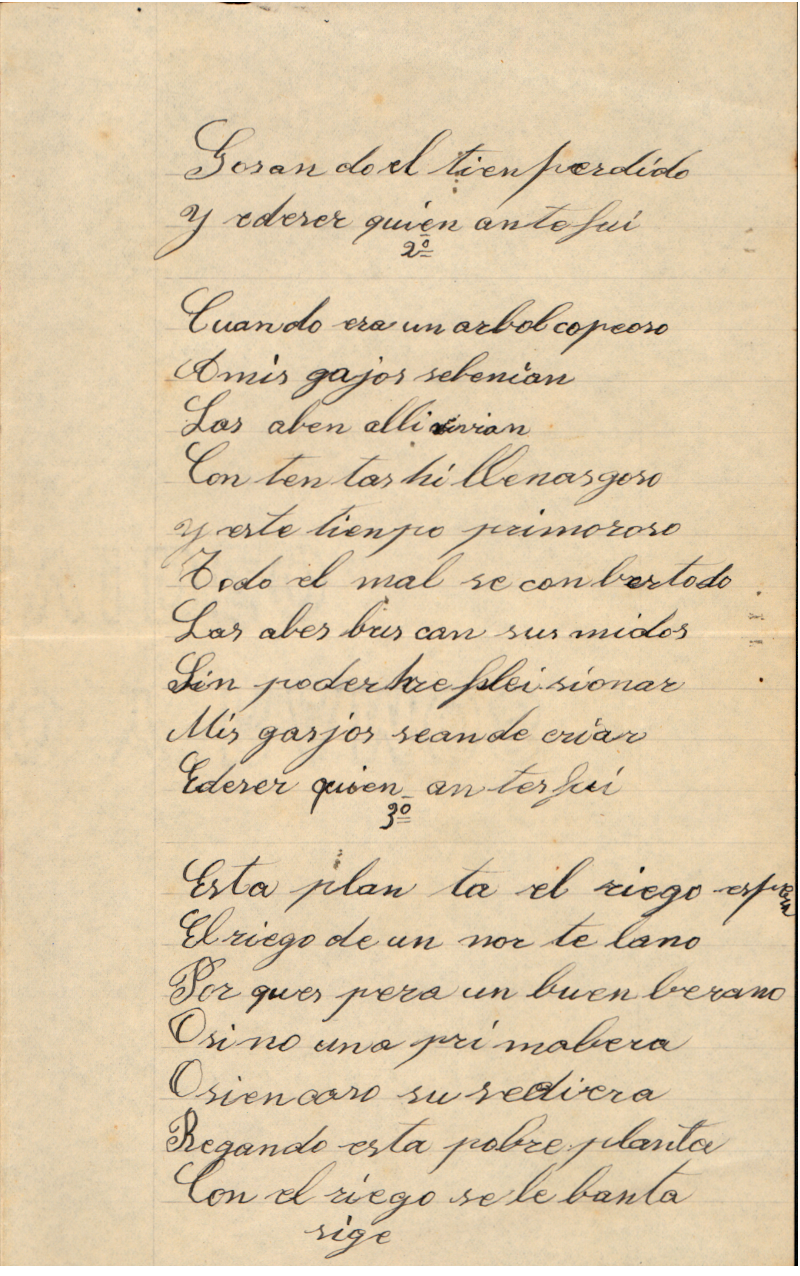 Gosan do el tien perdido
Y ederer quien ante fui
2º
Cuando era un arbol copeoso
A mis gajos sebenian
Las aben alli vivian
Con ten tas hi llenas goso
y este tienpo primoroso
Todo el mal se con bertodo
Las abes bus can sus nidos
Sin poder
Mis gasjos seande criar
Ederer quien antes fui
3º
Esta plan ta el riego espera
El riego de un nor te lano
Por ques pera un buen berano
Osi no una pri mabera
Osiencaso su sediera
Regando esta pobre planta
Con el riego se le banta
sige